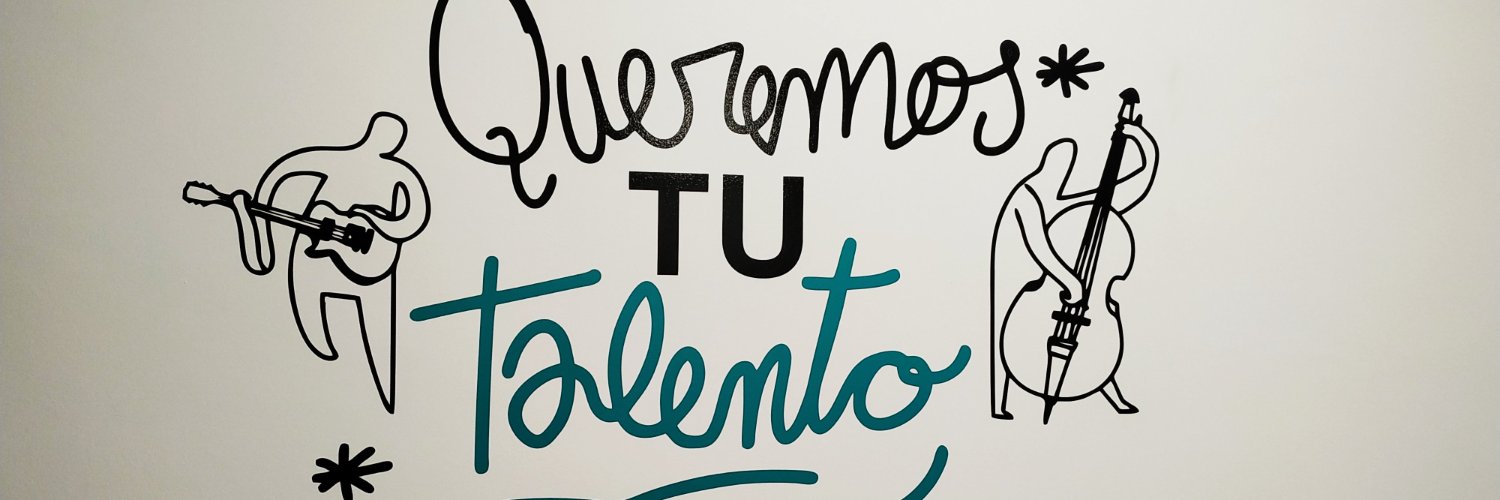 Queremos
TU
Talento